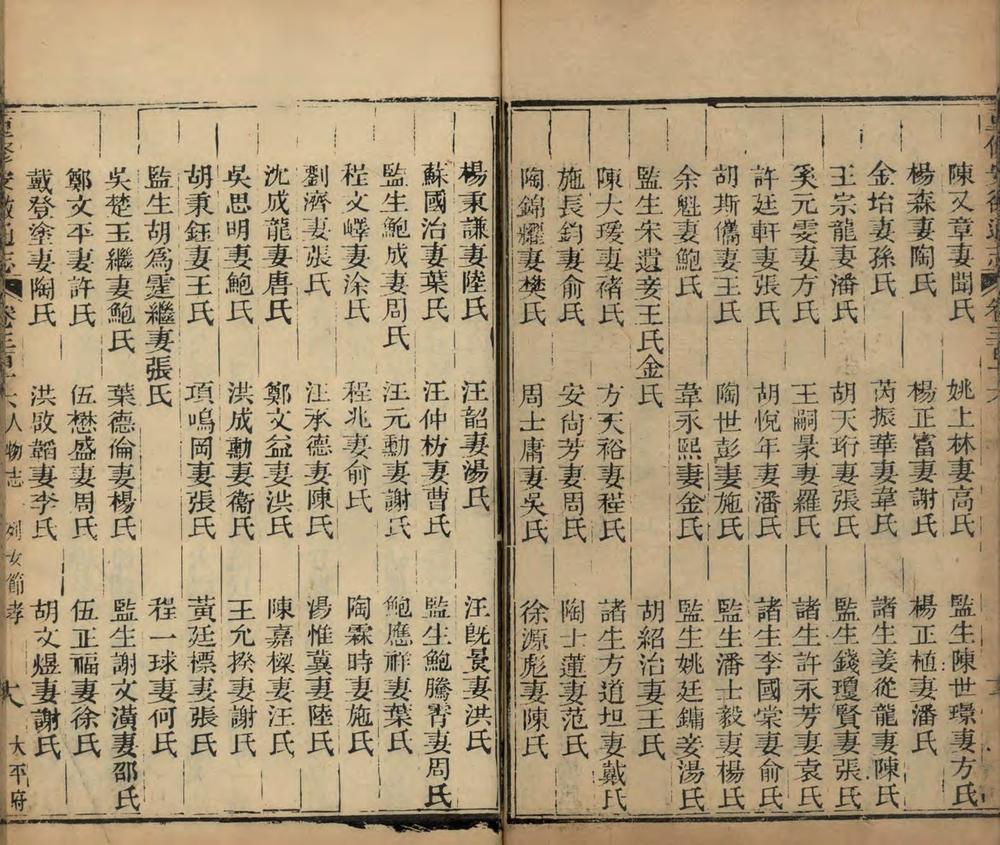 陳文章妻聞氏 姚上林妻高氏 監生陳世璟妻方氏
楊森妻陶氏 楊正富妻謝氏 楊正植妻潘氏
金坮妻孫氏 芮振華妻韋氏 諸生姜從龍妻陳氏
王宗龍妻潘氏 胡天珩妻張氏 監生錢瓊賢妻張氏
奚元雯妻方氏 王嗣㬌妻羅氏 諸生許永芳妻袁氏
許廷軒妻張氏 胡悅年妻潘氏 諸生李國棠妻俞氏
胡斯儁妻王氏 陶世彭妻施氏 監生潘士毅妻楊氏
余魁妻鮑氏 韋永熙妻金氏 監生姚廷鏞妾湯氏
監生朱遺妾王氏金氏 胡紹治妻王氏
陳大瑗妻褚氏 方天裕妻程氏 諸生方道坦妻戴氏
施長鈞妻俞氏 安尙芳妻周氏 陶士蓮妻范氏
陶錦耀妻樊氏 周士庸妻吳氏 徐源彪妻陳氏
楊秉謙妻陸氏 汪韶妻湯氏 汪旣景妻洪氏
蘇國治妻葉氏 汪仲枋妻曹氏 監生鮑騰霄妻周氏
監生鮑成妻周氏 汪元勳妻謝氏 鮑應祥妻葉氏
程文嶧妻涂氏 程兆妻俞氏 陶霖時妻施氏
劉濟妻張氏 汪承德妻陳氏 湯惟冀妻陸氏
沈成龍妻唐氏 鄭文益妻洪氏 陳嘉樑妻汪氏
吳思明妻鮑氏 洪成勳妻衞氏 王允揆妻謝氏
胡秉鈺妻王氏 項鳴岡妻張氏 黃廷標妻張氏
監生胡爲霆繼妻張氏 程一球妻何氏
吳楚玉繼妻鮑氏 葉德倫妻楊氏 監生謝文漢妻邵氏
鄭文平妻許氏 伍懋盛妻周氏 伍正福妻徐氏
戴登塗妻陶氏 洪啟韜妻李氏 胡文煜妻謝氏
人物志 列女節孝 大平府